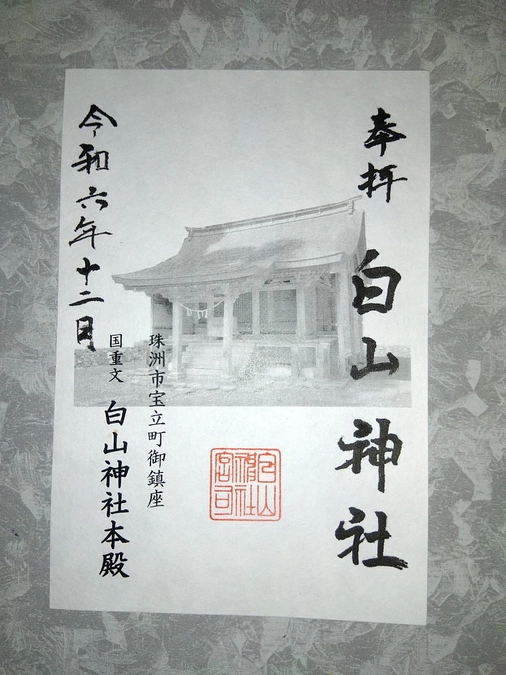 奉拝
白山神社
白山
神社
宮司
珠洲市宝立町御鎮座
国重文 白山神社本殿
令和六年十二月